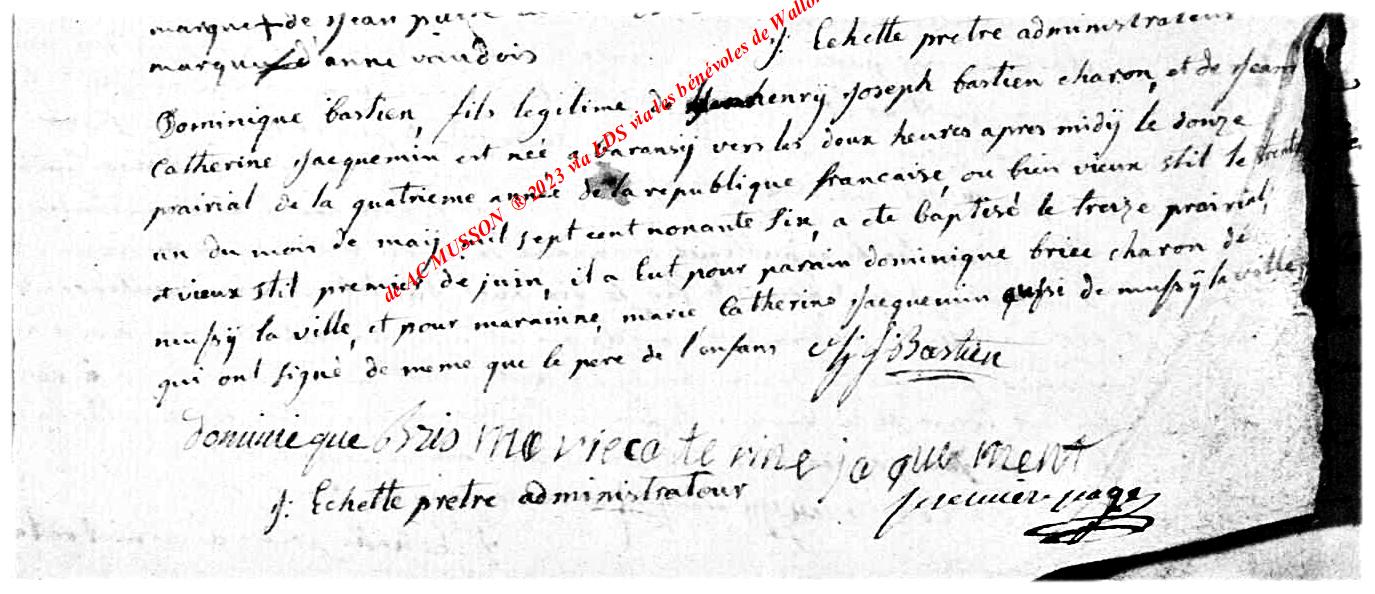 marque + de Jean
J. Echette pretre administrateur
marque d'anne vaudois
Dominique bastien, fils legitime de henrÿ Joseph bastien charon, et de Jean
Catherine Jacquemin est née a baransÿ vers les doux heures apres midÿ le douze
prairial de la quatrieme année de la republique francaise, ou bien vieux stil le trent
un du mois de maÿ mil sept cent nonante six, a ete baptisé le treize prairial,
et vieux stil premier de juin, il a Eut pour parain dominique briee charon de
mussÿ la ville, et pour marainne, marie Catherine Jacquemin aussi de mussÿ la ville
qui ont signé de meme que le pere de l'ensans H J Bastien
dominique Bris marie caterine jaquement
J. Echette pretre administratour
premier page
de AC MUSSON ® 2023 via LDS via des bénévoles de Wallo